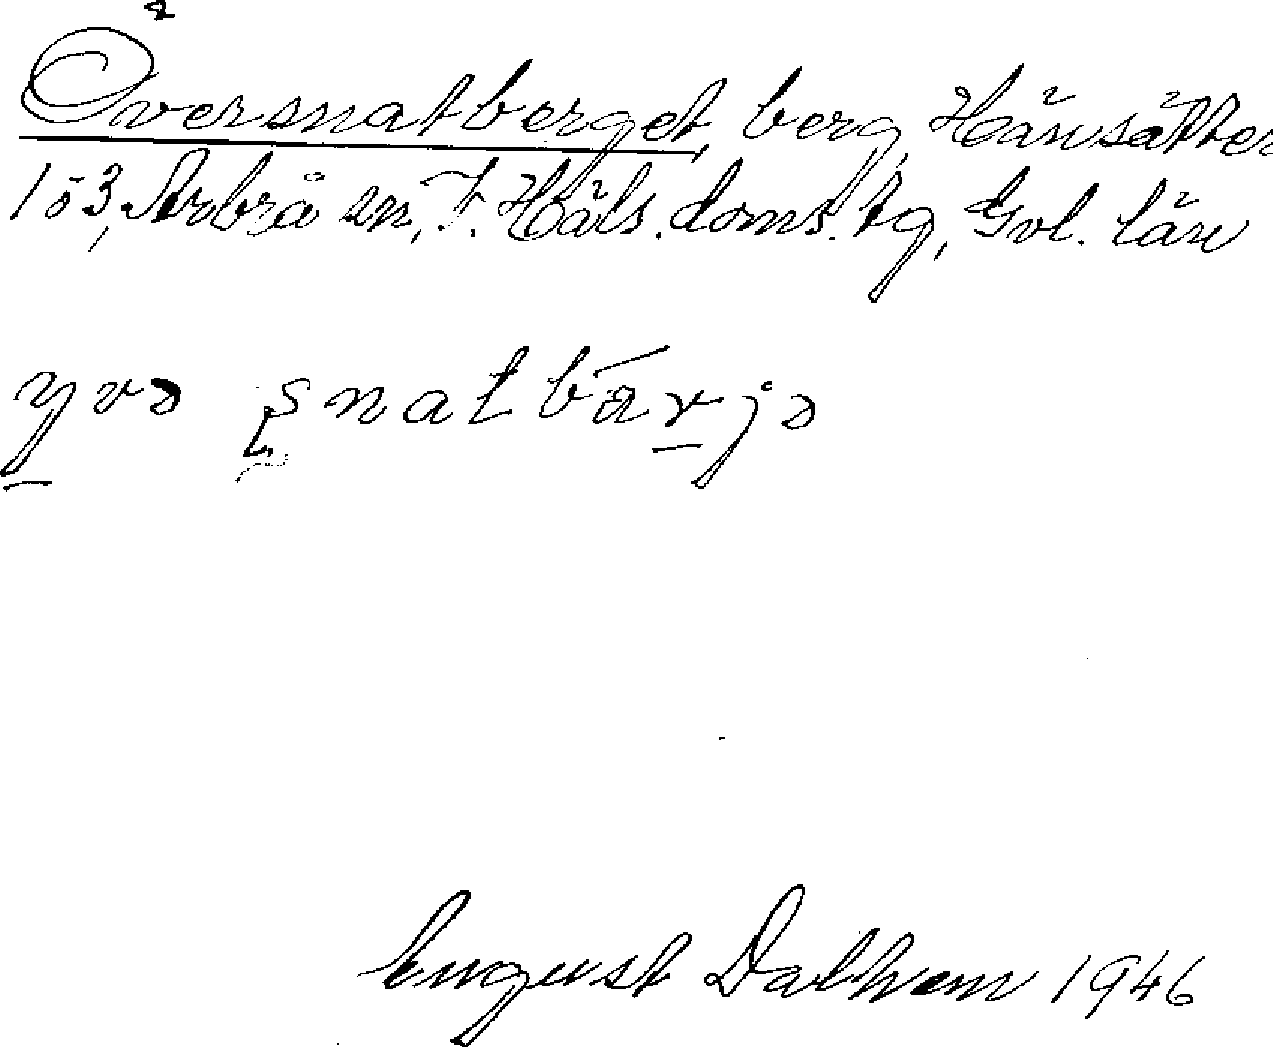 Översnatberget, berg, Hänsätter
1 ö 3, Arbrå sn, V. Häls. doms. tg, Gvl. län
yvə ʂnatbä̀rjə
August Dalhem 1946